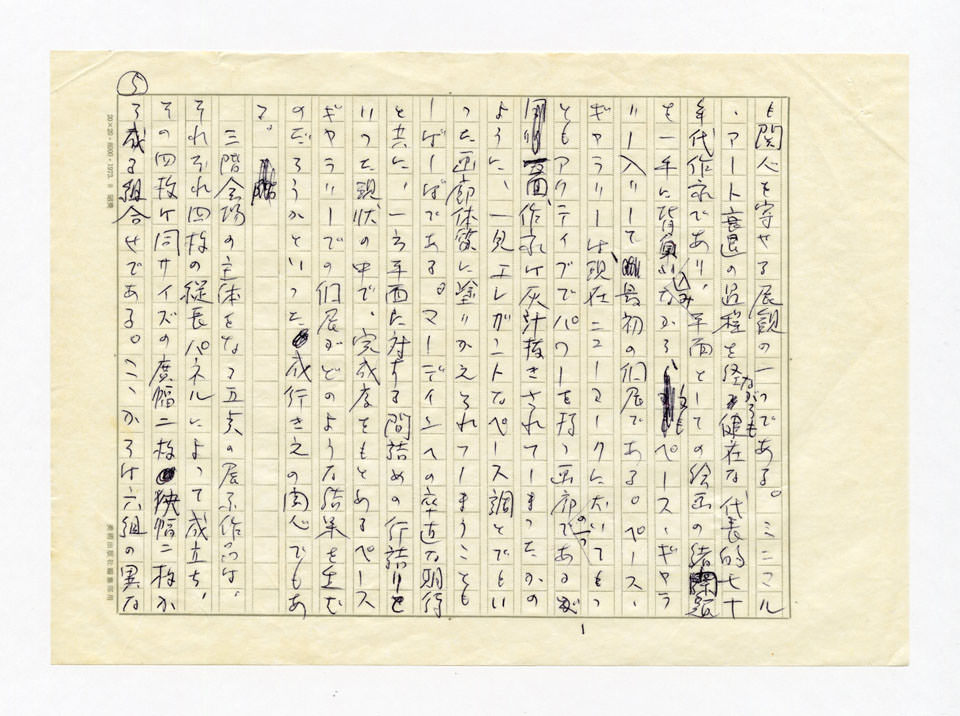 も関心を寄せる展観の一つである。ミニマル
・アート衰退の過程を経ながらも健在な代表的七十
年代作家であり、平面としての絵画の諸問題
を一手に背負い込みながら、もペース・ギャラ
リー入りして最初の個展である。ペース・
ギャラリーは、現在ニューヨークにおいてもっ
ともアクティブでパワーを持つ画廊の一つであるが
反面、作家は灰汁抜きされてしまったかの
ように、一見エレガントなペース調とでもい
った画廊体質に塗りかえられてしまうことも
しばしばである。マーディンへの卒直な期待
と共に、一方平面に対する問詰めの行詰りと
いった現状の中で、完成度をもとめるペース
ギャラリーでの個展がどのような結果を生む
のだろうかといった成行きえの関心でもあ
る。
三階会場の主体をなす五点の展示作品は、
それぞれ四枚の縦長パネルによって成立ち、
その四枚は同サイズの広幅二枚狭幅二枚か
ら成る組合せである。ここからは六組の異な
5
20×20・8000・1973. 8 銀泉
美術出版社編集部用